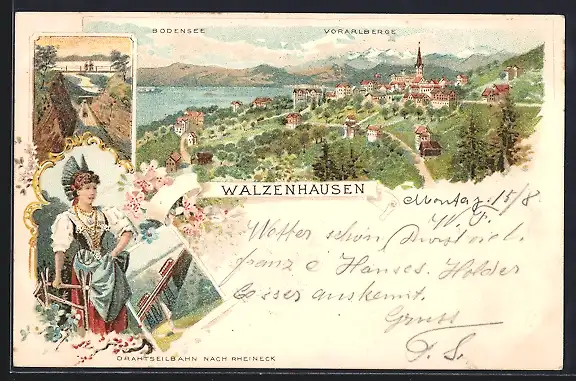 BODENSEE
VORARLBERGE
WALZENHAUSEN
Montag 15/8
Wetter schön Durst viel.
franz e Hanses. Holder
auskennt.
Gruss
DRAHTSEILBAHN NACH RHEINECK